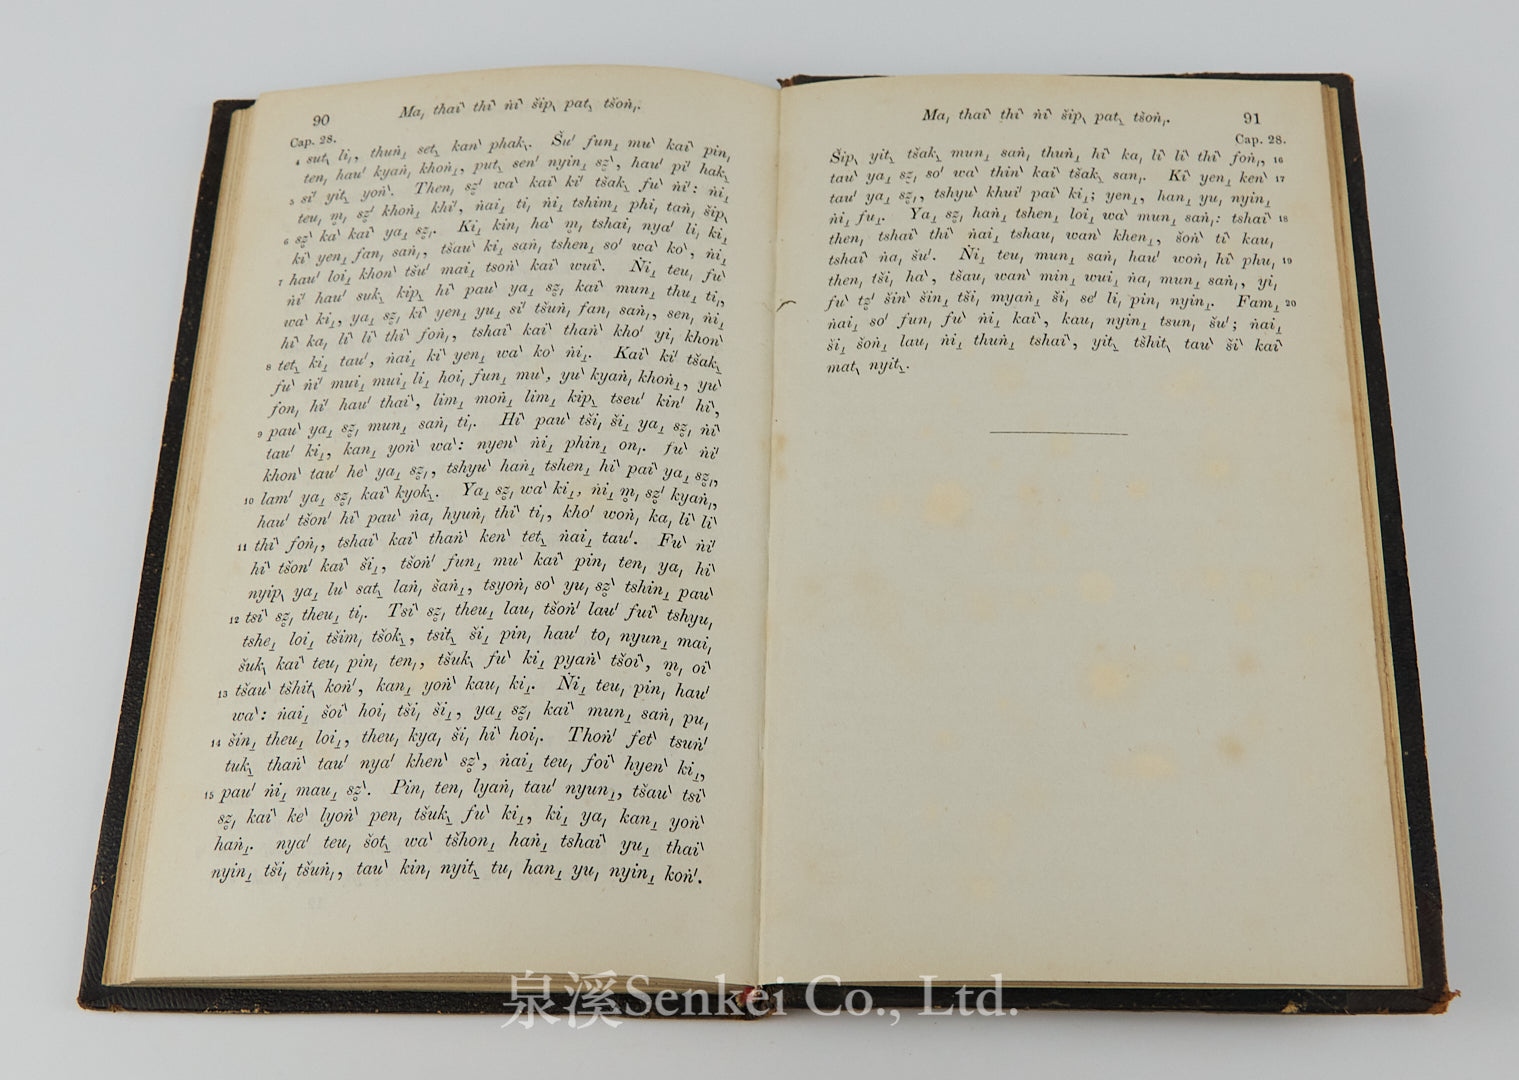 90
Ma꜀ thaiˋ thiˋ ṅiˋ šip꜆ pat˛ tšoṅ꜀.
Cap. 28.
4 sut˛ li꜀, thuṅ˛ set˛ kanˋ phak˛. Šuˊ fun꜀ muˋ kaiˋ pin꜀
ten꜀ hauˊ kyaṅ꜀ khoṅ˛, put˛ senˊ nyin˛ sz̥ˋ, hauˊ piˊ hak˛
5 siˊ yit˛ yoṅˋ. Then꜀ sz̥ˊ waˋ kaiˋ kiˊ tšak˛ fuˋ ṅiˊ: ṅi˛
teu꜀ m̥˛ sz̥ˊ khoṅ˛ khiˊ, ṅai˛ ti꜀ ṅi˛ tshim˛ phi꜀ taṅ꜀ šip꜆
6 sz̥ˋ kaˋ kaiˋ ya˛ sz̥꜀. Ki˛ kin꜀ haˋ m̥˛ tshai꜀ nyaˊ li꜀ ki˛
kiˋ yen꜀ fan꜀ saṅ꜀, tšauˋ ki˛ saṅ꜀ tshen˛ soˊ waˋ koˋ, ṅi˛
7 hauˊ loi˛ khonˋ tšuˊ mai꜀ tsoṅˋ kaiˋ wuiˋ. Ṅi˛ teu꜀ fuˋ
ṅiˊ hauˊ suk꜆ kip꜆ hiˋ pauˋ ya˛ sz̥꜀ kaiˋ mun˛ thu˛ ti꜀,
waˋ ki˛, ya˛ sz̥꜀ kiˋ yen꜀ yu꜀ siˊ tšuṅ꜀ fan꜀ saṅ꜀, sen꜀ ṅi˛
hiˋ ka꜀ liˋ liˋ thiˋ foṅ꜀, tshaiˋ kaiˋ thaṅˋ khoˊ yi꜀ khonˋ
8 tet˛ ki˛ tauˊ, ṅai˛ kiˋ yen꜀ waˋ koˋ ṅi˛. Kaiˋ kiˊ tšak˛
fuˋ ṅiˊ mui꜀ mui꜀ li꜀ hoi꜀ fun꜀ muˋ, yuˋ kyaṅ꜀ khoṅ˛, yuˋ
fon꜀ hiˊ hauˊ thaiˋ, lim˛ moṅ꜀ lim˛ kip꜆ tseuˊ kinˊ hiˋ,
9 pauˋ ya˛ sz̥꜀ mun˛ saṅ꜀ ti꜀. Hiˋ pauˋ tši꜀ ši˛ ya˛ sz̥꜀ ṅiˊ
tauˊ ki˛, kan˛ yoṅˋ waˋ: nyenˋ ṅi˛ phin˛ on꜀. fuˋ ṅiˊ
khonˋ tauˊ heˋ ya˛ sz̥꜀, tshyuˋ haṅ˛ tshen˛ hiˋ paiˋ ya˛ sz̥꜀,
10 lamˊ ya˛ sz̥꜀ kaiˋ kyok˛. Ya˛ sz̥꜀ waˋ ki˛, ṅi˛ m̥˛ sz̥ˊ kyaṅ꜀,
hauˊ tšonˊ hiˋ pauˋ ṅa꜀ hyuṅ꜀ thiˋ ti꜀, khoˊ woṅ꜀ ka꜀ liˋ liˋ
11 thiˋ foṅ꜀, tshaiˋ kaiˋ thaṅˋ kenˋ tet˛ ṅai꜀ tauˊ. Fuˋ ṅiˊ
hiˋ tšonˋ kaiˋ ši˛, tšoṅˊ fun꜀ muˋ kaiˋ pin꜀ ten꜀ ya꜀ hiˋ
nyip꜆ ya꜀ luˋ sat˛ laṅ˛ šaṅ˛, tsyoṅ꜀ soˋ yu꜀ sz̥ˋ tshin꜀ pauˋ
12 tsiˋ sz̥꜀ theu˛ ti꜀. Tsiˋ sz̥꜀ theu˛ lau꜀ tšoṅˊ lauˊ fuiˋ tshyu꜀
tshe꜀ loi˛ tšim꜀ tšok˛, tsit˛ ši˛ pin꜀ hauˊ to꜀ nyun˛ mai꜀
šuk꜆ kaiˋ teu꜀ pin꜀ ten꜀, tšuk˛ fuˋ ki˛ pyaṅˋ tšoiˋ, m̥˛ oiˋ
13 tšauˋ tšhit꜆ koṅˊ, kan˛ yoṅˋ kau꜀ ki˛. Ṅi˛ teu꜀ pin꜀ hauˊ
waˋ: ṅai˛ šoiˋ hoi꜀ tši꜀ ši˛, ya˛ sz̥꜀ kaiˋ mun˛ saṅ꜀ pu꜀
14 šin꜀ theu꜀ loi˛, theu꜀ kya꜀ ši꜀ hiˋ hoi꜀. Thoṅˊ fetˋ tsuṅˊ
tuk˛ thaṅˋ tauˊ nyaˊ khenˋ sz̥ˋ, ṅai˛ teu꜀ foiˋ hyenˋ ki˛,
15 pauˊ ṅi˛ mau˛ sz̥ˋ. Pin꜀ ten꜀ lyaṅ꜀ tauˊ nyun˛, tšauˋ tsiˋ
sz̥꜀ kaiˋ keˋ lyoṅˋ pen꜀ tšuk˛ fuˋ ki˛, ki˛ ya꜀ kan˛ yoṅˋ
haṅ꜀. nyaˊ teu꜀ šot˛ waˋ tšhon꜀ haṅ˛ tshaiˋ yu˛ thaiˋ
nyin˛ tši꜀ tšuṅ꜀, tauˋ kin꜀ nyit˛ tu꜀ han˛ yu꜀ nyin˛ koṅˊ.
Ma꜀ thaiˋ thiˋ ṅiˋ šip꜆ pat˛ tšoṅ꜀.
91
Cap. 28.
Šip꜆ yit˛ tšak˛ mun˛ saṅ꜀ thuṅ˛ hiˋ ka꜀ liˋ liˋ thiˋ foṅ꜀, 16
tauˋ ya˛ sz̥꜀ soˊ waˋ thinˋ kaiˋ tšak˛ san꜀. Kiˋ yen꜀ kenˋ 17
tauˊ ya˛ sz̥꜀, tshyuˋ khuiˊ paiˋ ki˛; yen꜀, han˛ yu꜀ nyin˛
ṅi꜀ fu˛. Ya˛ sz̥꜀ haṅ˛ tshen˛ loi˛ waˋ mun˛ saṅ꜀: tshaiˋ 18
then꜀ tshaiˋ thiˋ ṅai˛ tshau꜀ wanˋ khen˛, šoṅˋ tiˋ kau꜀
tshaiˋ ṅa꜀ šuˊ. Ṅi˛ teu꜀ mun˛ saṅ꜀ hauˊ woṅ꜀ hiˋ phu꜀ 19
then꜀ tši꜀ haˋ, tšau꜀ wanˋ min˛ wui˛ ṅa꜀ mun˛ saṅ꜀, yi꜀
fuˋ tz̥ˊ šinˋ šin˛ tši꜀ myaṅ˛ ši꜀ seˊ li꜀ pin꜀ nyin˛. Fam˛ 20
ṅai˛ soˊ fun꜀ fuˋ ṅi˛ kaiˋ, kau꜀ nyin˛ tsun꜀ šuˊ; ṅai˛
ši꜀ šoṅ˛ lau꜀ ṅi˛ thuṅ˛ tshaiˋ, yit˛ tšhit˛ tauˋ šiˋ kaiˋ
mat꜆ nyit˛.
泉溪Senkei Co., Ltd.